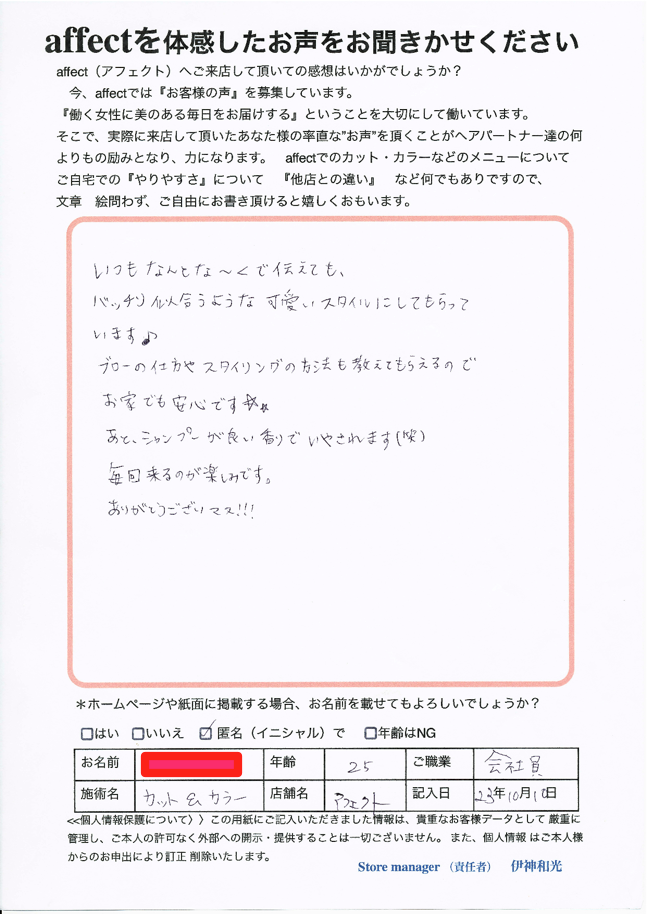 affectを体感したお声をお聞きかせください
affect（アフェクト）へご来店して頂いての感想はいかがでしょうか？
今、affectでは『お客様の声』を募集しています。
『働く女性に美のある毎日をお届けする』ということを大切にして働いています。
そこで、実際に来店して頂いたあなた様の率直な”お声”を頂くことがヘアパートナー達の何
よりもの励みとなり、力になります。　affectでのカット・カラーなどのメニューについて
ご自宅での『やりやすさ』について　『他店との違い』　など何でもありですので、
文章　絵問わず、ご自由にお書き頂けると嬉しくおもいます。
いつもなんとな〜くで伝えても、
バッチリ似合うような可愛いスタイルにしてもらって
います♪
ブローの仕方やスタイリングの方法も教えてもらえるので
お家でも安心です☆★
あと、シャンプーが良い香りでいやされます(笑)
毎回来るのが楽しみです。
ありがとうございマス!!!
＊ホームページや紙面に掲載する場合、お名前を載せてもよろしいでしょうか？
□はい　□いいえ　☑匿名（イニシャル）で　□年齢はNG
お名前　年齢　25　ご職業　会社員
施術名　カット＆カラー　店舗名　アフェクト　記入日　23年10月10日
<<個人情報保護について〉〉この用紙にご記入いただきました情報は、貴重なお客様データとして 厳重に
管理し、ご本人の許可なく外部への開示・提供することは一切ございません。また、個人情報 はご本人様
からのお申出により訂正 削除いたします。
Store manager （責任者）　伊神和光